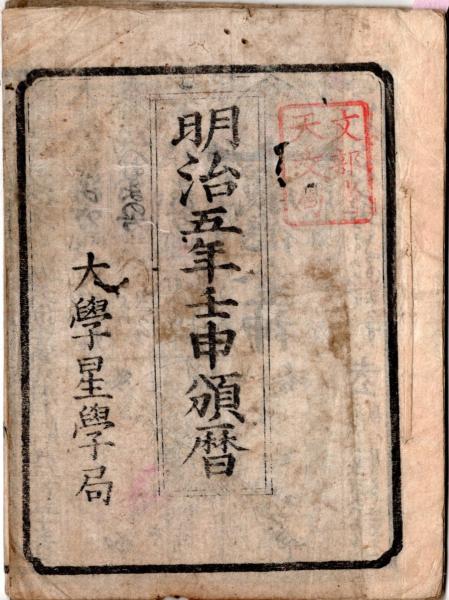 文部省
天文局
明治五年壬申頒暦
大學星學局